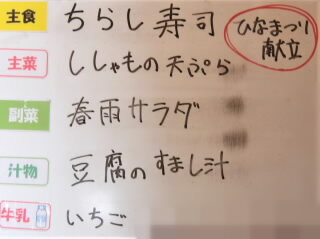 主食 ちらし寿司
ひなまつり
献立
主菜 ししゃもの天ぷら
副菜 春雨サラダ
汁物 豆腐のすまし汁
牛乳 いちご